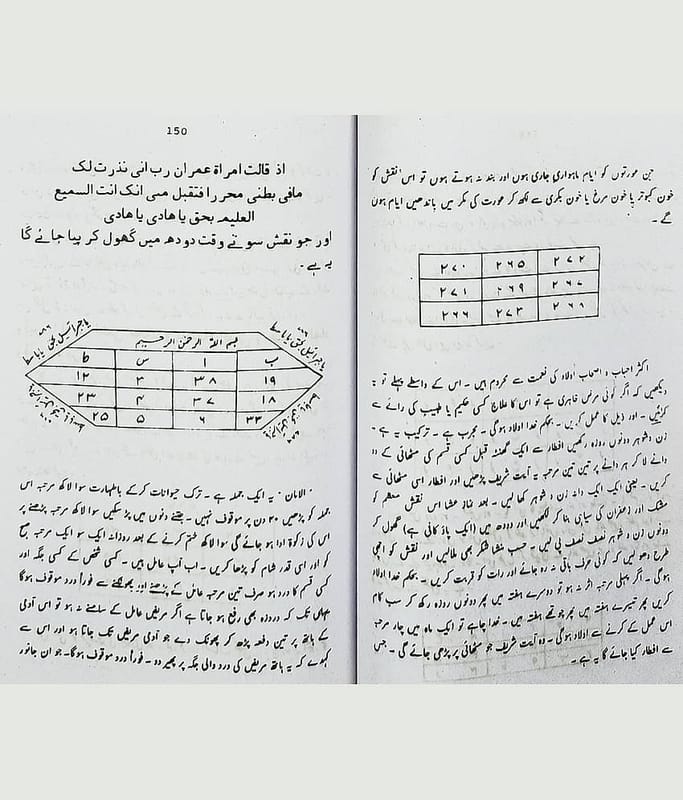 جن عورتوں کو ایام ماہواری جاری ہوں اور بند نہ ہوتے ہوں تو اس نقش کو
خون کبوتر یا خون مرغ یا خون بکری سے لکھ کر عورت کی کمر میں باندھیں ایام بند ہوں
گے۔
٢٧٢ ٢٦٥ ٢٧٠
٢٦٧ ٢٦٩ ٢٧١
٢٦٨ ٢٧٣ ٢٦٦
اکثر احباب و اصحاب اولاد کی نعمت سے محروم ہیں۔ اس کے واسطے پہلے تو یہ
دیکھیں کہ اگر کوئی مرض ظاہری ہے تو اس کا علاج کسی حکیم یا طبیب کی رائے سے
کرائیں۔ اور ذیل کا عمل کریں۔ بحکم خدا اولاد ہوگی۔ مجرب ہے۔ ترکیب یہ ہے۔
زن و شوہر دونوں روزہ رکھیں افطار سے ایک گھنٹہ قبل کسی قسم کی مٹھائی کے دو
دانے لا کر ہر دانے پر تین تین مرتبہ یہ آیت شریف پڑھیں اور افطار اسی مٹھائی سے
کریں۔ یعنی ایک ایک دانہ زن و شوہر کھا لیں۔ بعد نماز عشا اس نقش معظم کو
مشک اور زعفران کی سیاہی بنا کر لکھیں اور دودھ میں (ایک پاؤ کافی ہے) گھول کر
دونوں زن و شوہر نصف نصف پی لیں۔ حسب منشا شکر بھی ملالیں اور نقش کو اچھی
طرح دھو لیں کہ کوئی حرف باقی نہ رہ جائے اور رات کو قربت کریں۔ بحکم خدا اولاد
ہوگی۔ اگر پہلی مرتبہ اثر نہ ہو تو دوسرے ہفتے میں پھر دونوں روزہ رکھ کر سب کام
کریں پھر تیسرے ہفتے میں پھر چوتھے ہفتے میں۔ خدا چاہے تو ایک ماہ میں چار مرتبہ
اس عمل کے کرنے سے اولاد ہوگی۔ وہ آیت شریف جو مٹھائی پر پڑھی جائے گی۔ جس
سے افطار کیا جائے گا یہ ہے۔
150
اذ قالت امراة عمران رب انی نذرت لک
مافی بطنی محررا فتقبل منی انک انت السمیع
العلیم بحق یا ھادی یا ھادی
اور جو نقش سوتے وقت دودھ میں گھول کر پیا جائے گا
یہ ہے۔
بسم اللہ الرحمن الرحیم
ب ا س ط
١٩ ٣٨ ٣ ١٢
١٨ ٣٧ ٤ ٢٣
٣٣ ٦ ٥ ٢٥
"الامان" یہ ایک جملہ ہے۔ ترک حیوانات کرکے باطہارت سوا لاکھ مرتبہ اس
جملہ کو پڑھیں ٣٠ دن پر موقوف نہیں۔ جتنے دنوں میں پڑھ سکیں سوا لاکھ مرتبہ پڑھنے پر
اس کی زکوۃ ادا ہو جائے گی سوا لاکھ ختم کرنے کے بعد روزانہ ایک سو ایک مرتبہ صبح
کو اور اسی قدر شام کو پڑھا کریں۔ اب آپ عامل ہیں۔ کسی شخص کے کسی جگہ اور
کسی قسم کا درد ہو صرف تین مرتبہ عامل کے پڑھنے اور پھونکنے سے فوراً درد موقوف ہوگا
یہاں تک کہ دردزہ بھی رفع ہو جاتا ہے اگر مریض عامل کے سامنے نہ ہو تو اس آدمی
کے ہاتھ پر تین دفعہ پڑھ کر پھونک دے جو آدمی مریض تک جاتا ہو اور اس سے
کہدے کہ یہ ہاتھ مریض کی درد والی جگہ پر پھیر دو۔ فوراً درد موقوف ہوگا۔ جو ان جانور